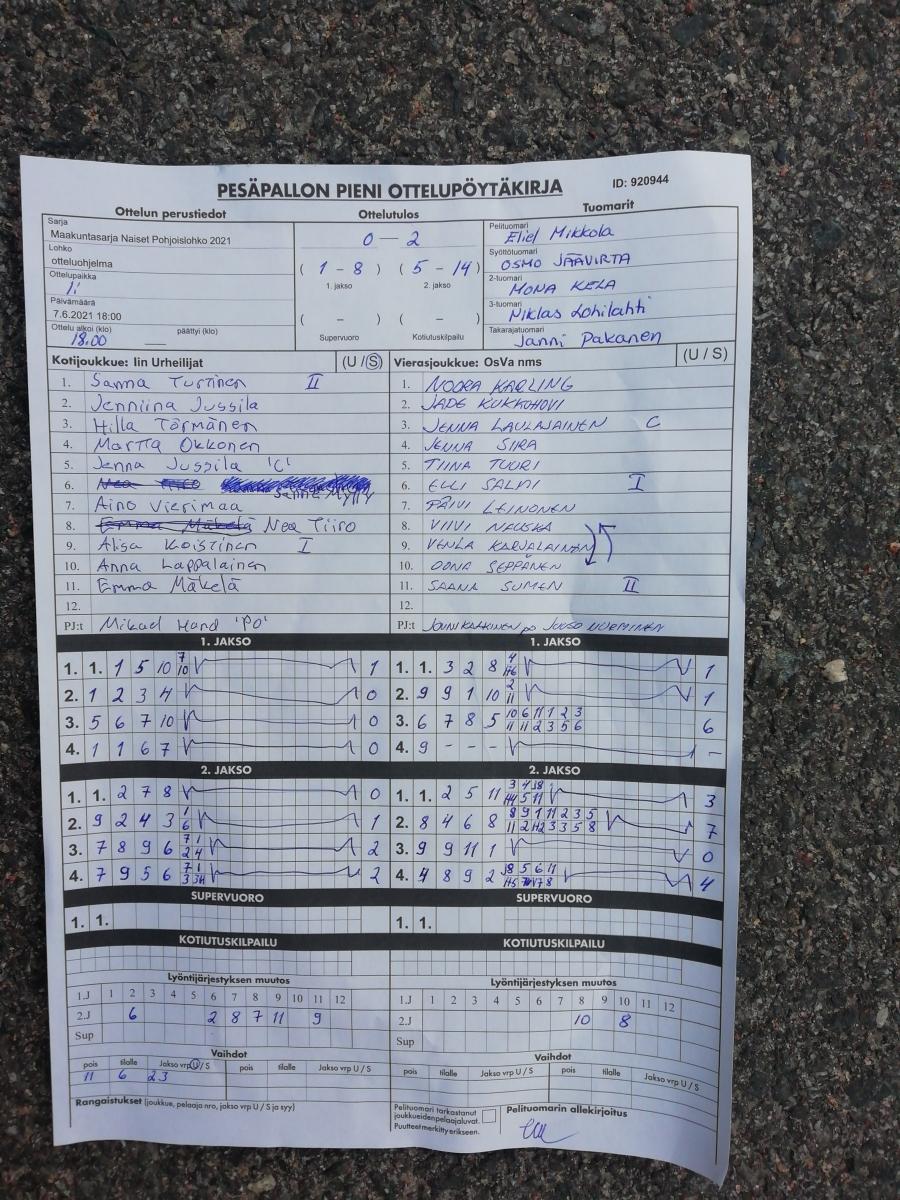 PESÄPALLON PIENI OTTELUPÖYTÄKIRJA ID: 920944
Ottelun perustiedot Ottelutulos Tuomarit
Sarja
Maakuntasarja Naiset Pohjoislohko 2021
Lohko
otteluohjelma
Ottelupaikka
Ii
Päivämäärä
7.6.2021 18:00
Ottelu alkoi (klo) päättyi (klo)
18.00
0 — 2
( 1 - 8 ) ( 5 - 14 )
1. jakso 2. jakso
( - ) ( - )
Supervuoro Kotiutuskilpailu
Pelituomari
Eliel Mikkola
Syöttötuomari
OSMO JÄÄVIRTA
2-tuomari
MONA KELA
3-tuomari
Niklas Lohilahti
Takarajatuomari
Janni Pakanen
Kotijoukkue: Iin Urheilijat (U / S)
1. Sanna Turtinen II
2. Jenniina Jussila
3. Hilla Törmänen
4. Martta Okkonen
5. Jenna Jussila 'C'
6. Sanna Mylly
7. Aino Vierimaa
8. Emma Mäkelä Nea Tiiro
9. Alisa Koistinen I
10. Anna Lappalainen
11. Emma Mäkelä
12.
PJ:t Mikael Hand 'PO'
Vierasjoukkue: OsVa nms (U / S)
1. NOORA KARLING
2. JADE KUKKOHOVI
3. JENNA LAULAJAINEN C
4. JENNA SIRA
5. TIINA TUURI
6. ELLI SALMI I
7. PÄIVI LEINONEN
8. VIIVI NAUSKA
9. VENLA KARJALAINEN
10. OONA SEPPÄNEN
11. SAANA SUMEN II
12.
PJ:t JOUNI KARKINEN pj JUUSO NURMINEN
1. JAKSO
1. 1. 1 5 10 7 10 1
2. 1 2 3 4 0
3. 5 6 7 10 0
4. 1 1 6 7 0
1. JAKSO
1. 1. 3 2 8 4 1
2. 9 9 1 10 2 11 1
3. 6 7 8 5 10 6 11 1 2 3 6
11 11 2 3 5 6
4. 9 - - - -
2. JAKSO
1. 1. 2 7 8 0
2. 9 2 4 3 1 6 1
3. 7 8 9 6 7 1 2 4 2
4. 7 9 5 6 7 1 2
2. JAKSO
1. 1. 2 5 11 3 4 3
2. 8 4 6 8 8 9 1 11 2 3 5 7
3. 9 9 11 1 0
4. 4 8 9 2 5 6 11 4
SUPERVUORO SUPERVUORO
1. 1. 1. 1.
KOTIUTUSKILPAILU KOTIUTUSKILPAILU
Lyöntijärjestyksen muutos
1.J 1 2 3 4 5 6 7 8 9 10 11 12
2.J 6 2 8 7 11 9
Sup
Lyöntijärjestyksen muutos
1.J 1 2 3 4 5 6 7 8 9 10 11 12
2.J 10 8
Sup
Vaihdot
pois tilalle Jakso vrp U / S pois tilalle Jakso vrp U / S
11 6 23
Vaihdot
pois tilalle Jakso vrp U / S pois tilalle Jakso vrp U / S
Rangaistukset (joukkue, pelaaja nro, jakso vrp U / S ja syy)
Pelituomari tarkastanut
joukkueidenpelaajaluvat.
Puutteet merkitty erikseen.
Pelituomarin allekirjoitus